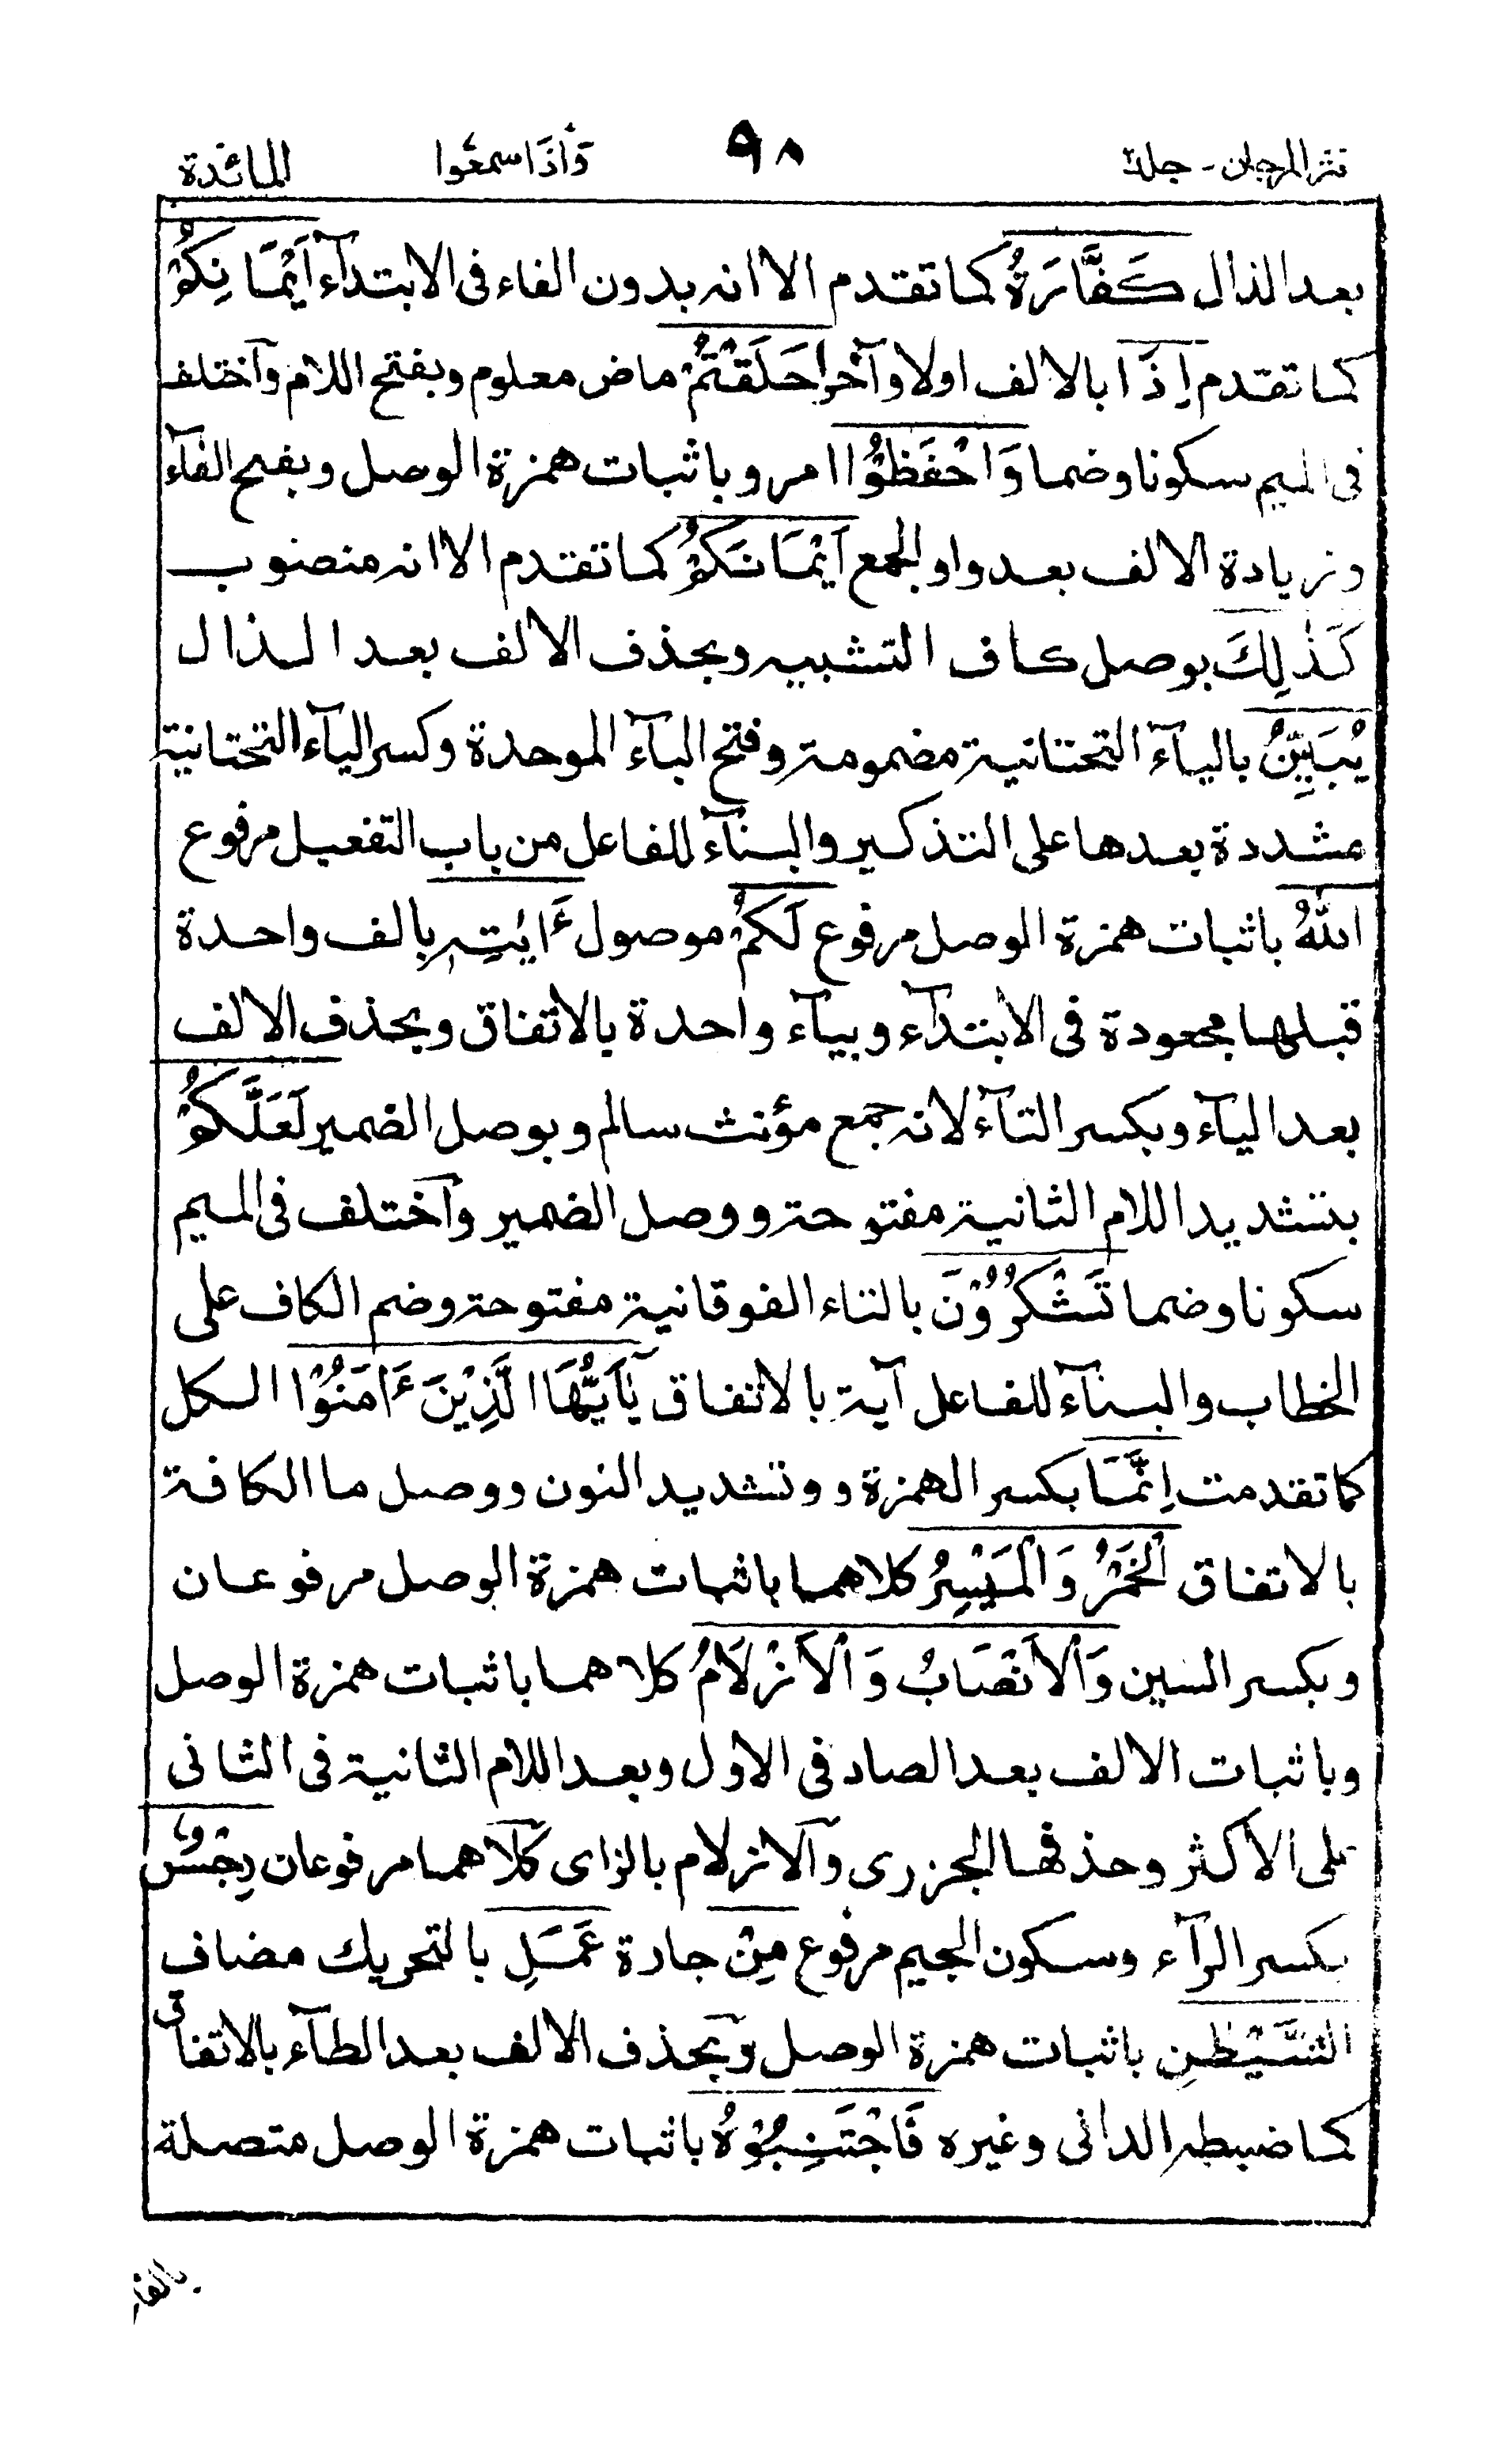 نثر المرجان - جلد ٢ ٩٨ وَاِذَا سمعوا المائدة
بعد الذال كَفَّارَةُ كما تقدم الا انه بدون الفاء فى الابتدآء اَيْمَانِكُمْ
كما تقدم اِذَا بالالف اولا وآخرا حَلَفْتُمْ ماض معلوم وبفتح اللام وآختلف
فى الميم سكونا وضما وَاحْفَظُوْا امر وباثبات همزة الوصل وبفتح الفآء
وزيادة الالف بعد واو الجمع اَيْمَانَكُمْ كما تقدم الا انه منصوب
كَذٰلِكَ بوصل كاف التشبيه وبحذف الالف بعد الذال
يُبَيِّنُ باليآء التحتانية مضمومة وفتح البآء الموحدة وكسر اليآء التحتانية
مشددة بعدها على التذكير والبنآء للفاعل من باب التفعيل مرفوع
اللّٰهُ باثبات همزة الوصل مرفوع لَكُمْ موصول ءَايٰتِهٖ بالف واحدة
قبلها مجعودة فى الابتدآء وبيآء واحدة بالاتفاق وبحذف الالف
بعد اليآء وبكسر التآء لانه جمع مؤنث سالم وبوصل الضمير لَعَلَّكُمْ
بتشديد اللام الثانية مفتوحة ووصل الضمير وآختلف فى الميم
سكونا وضما تَشْكُرُوْنَ بالتاء الفوقانية مفتوحة وضم الكاف على
الخطاب والبنآء للفاعل آية بالاتفاق يٰٓاَيُّهَا الَّذِيْنَ ءَامَنُوْا الكل
كما تقدمت اِنَّمَا بكسر الهمزة و وتشديد النون ووصل ما الكافة
بالاتفاق الْخَمْرُ وَالْمَيْسِرُ كلاهما باثبات همزة الوصل مرفوعان
وبكسر السين وَالْاَنْصَابُ وَالْاَزْلَامُ كلاهما باثبات همزة الوصل
وباثبات الالف بعد الصاد فى الاول وبعد اللام الثانية فى الثانى
على الاكثر وحذفها الجزرى وآلازلام بالزاى كلاهما مرفوعان رِجْسٌ
بكسر الرآء وسكون الجيم مرفوع مِنْ جارة عَمَلِ بالتحريك مضاف
الشَّيْطٰنِ باثبات همزة الوصل وبحذف الالف بعد الطآء بالاتفاق
كما ضبطه الدانى وغيره فَاجْتَنِبُوْهُ باثبات همزة الوصل متصلة
بالفاء